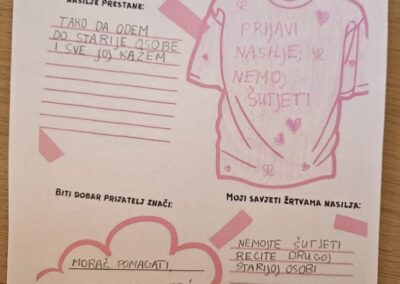 NASILJE PRESTANE:
TAKO DA ODEM
DO STARIJE OSOBE
I SVE JOJ KAŽEM
PRIJAVI
NASILJE,
NEMOJ
ŠUTJETI
BITI DOBAR PRIJATELJ ZNAČI:
MORAŠ POMAGATI,
MOJI SAVJETI ŽRTVAMA NASILJA:
NEMOJTE ŠUTJETI
RECITE DRUGOJ
STARIJOJ OSOBI